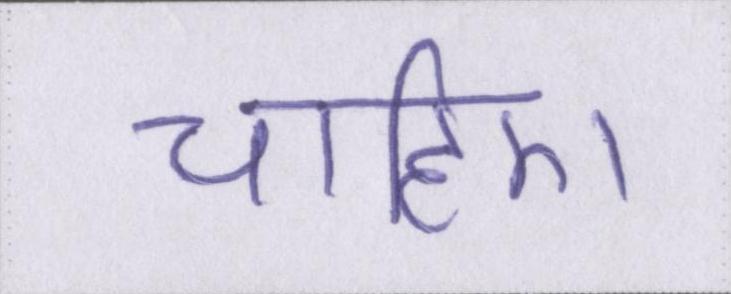 चाहिए।